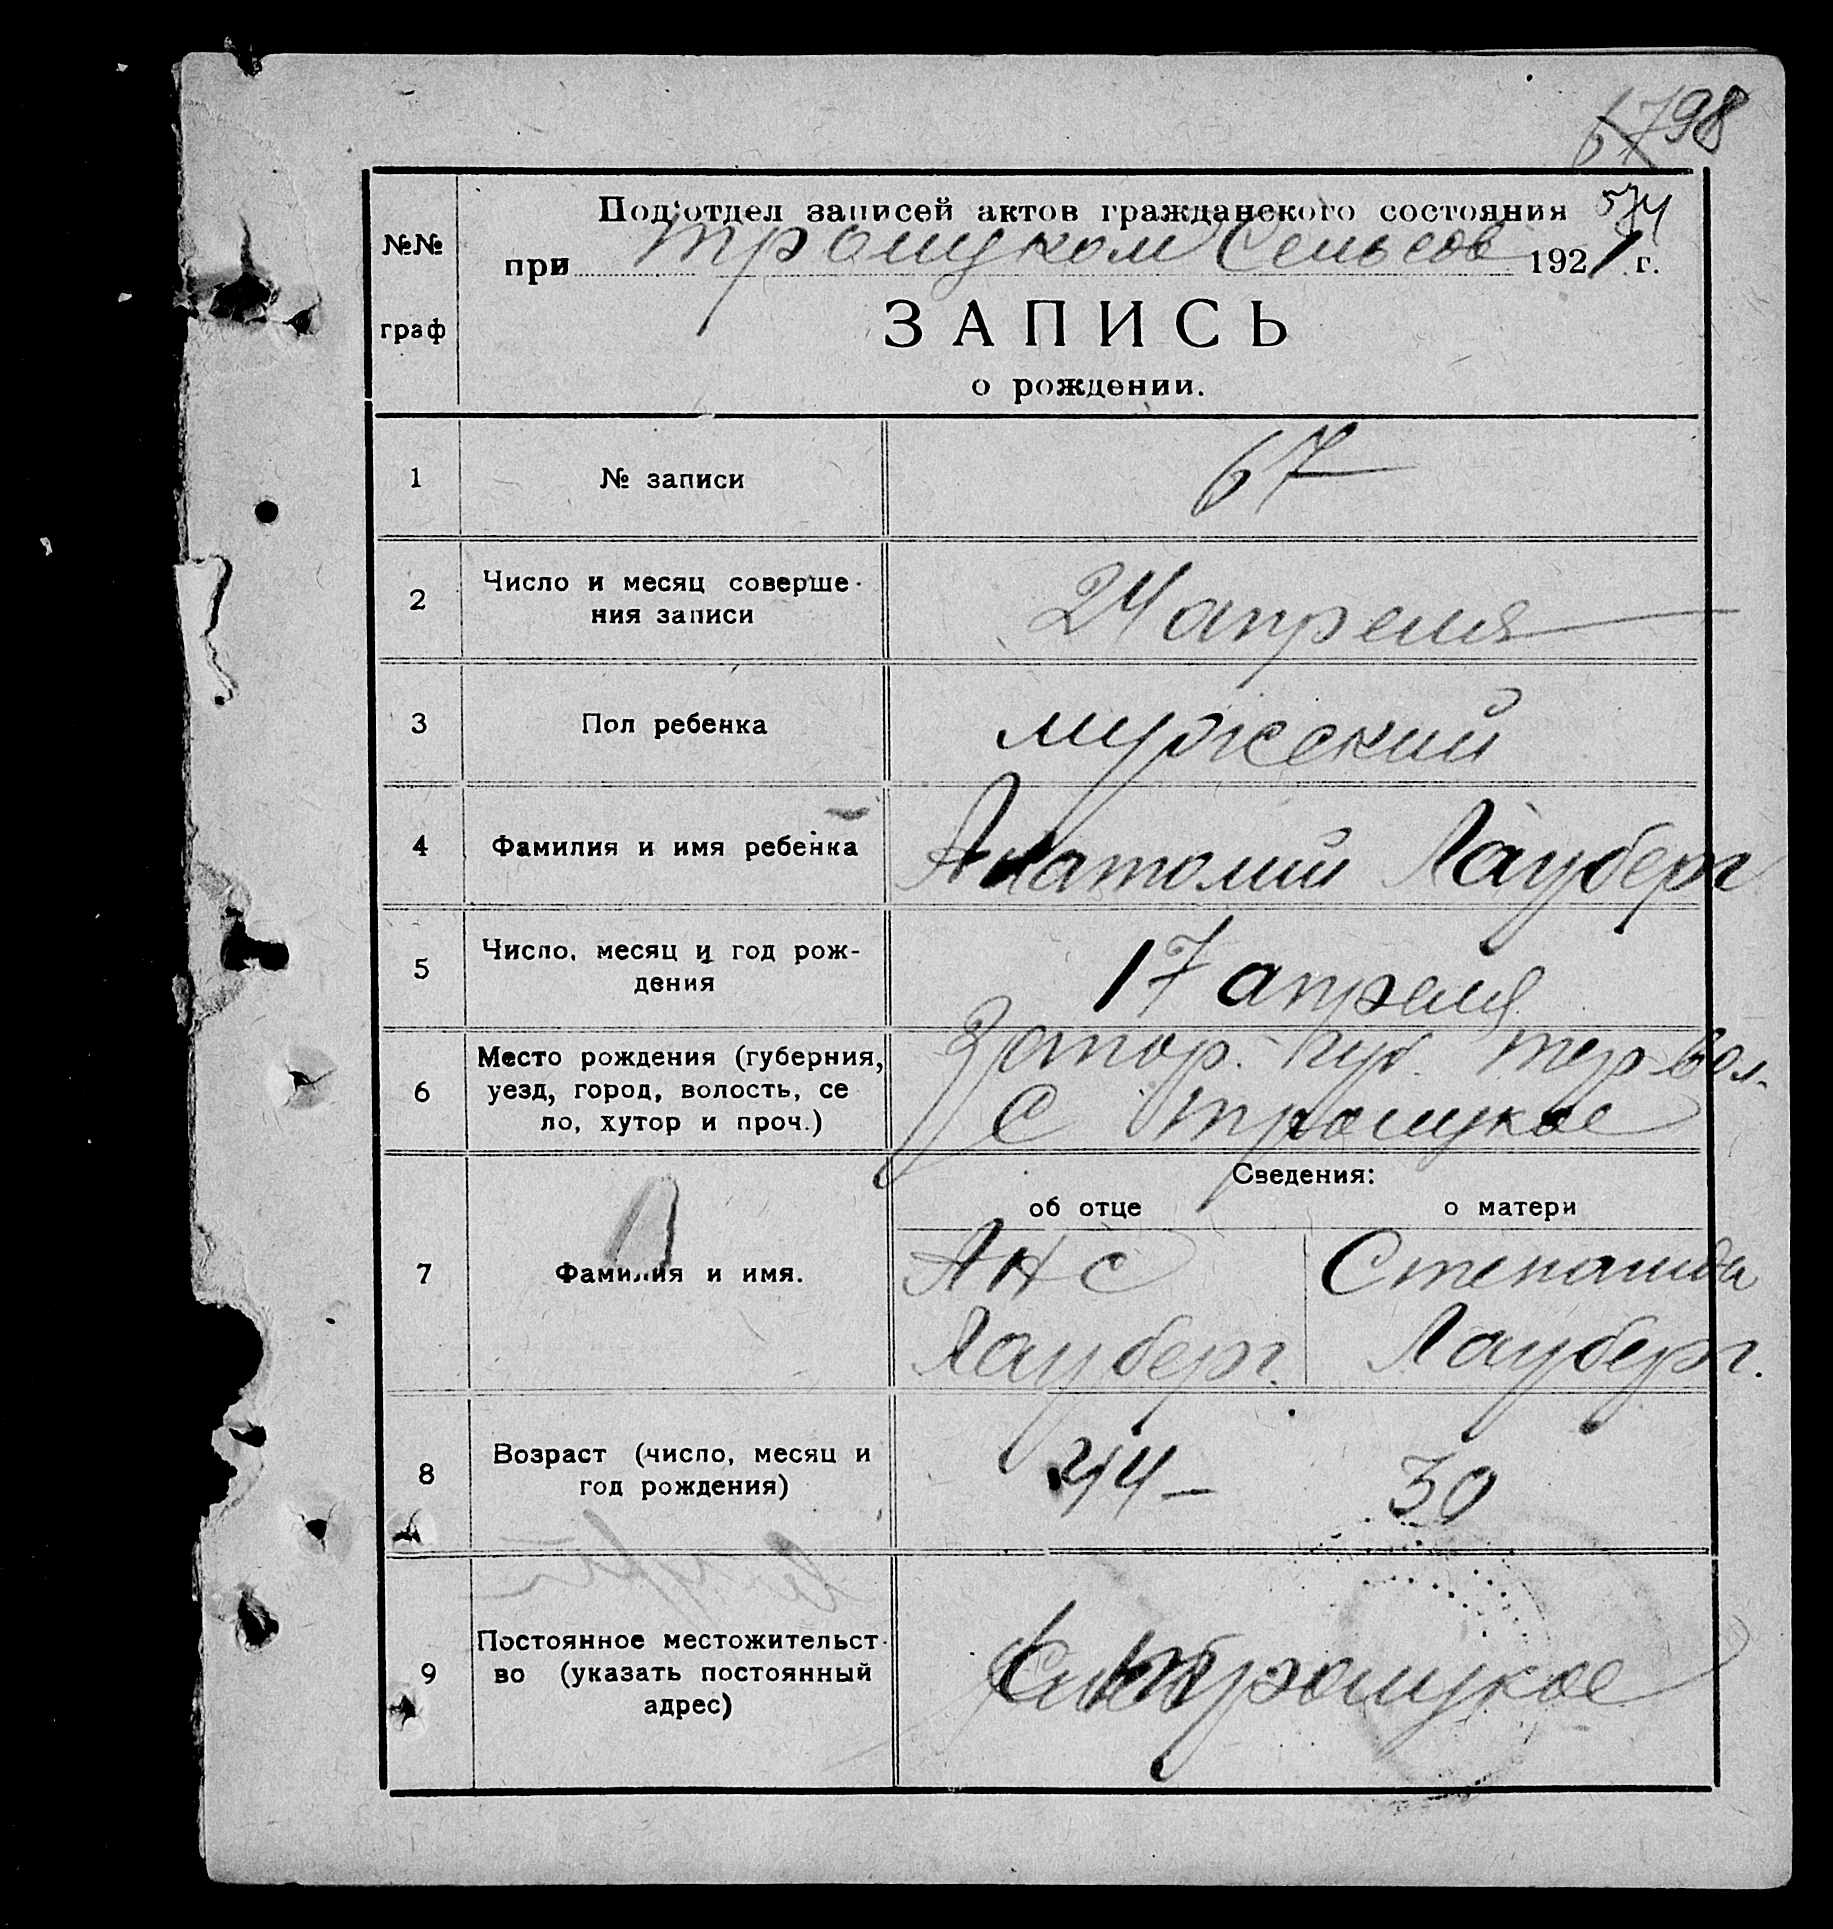 98
574
№№
граф
Под'отдел записей актов гражданского состояния
при Троицком Сельсов 1921 г.
ЗАПИСЬ
о рождении.
1 № записи 67
2 Число и месяц соверше-
ния записи 24 апреля
3 Пол ребенка мужеский
4 Фамилия и имя ребенка Анатолий Лауберг
5 Число, месяц и год рож-
дения 17 апреля
6 Место рождения (губерния,
уезд, город, волость, се
ло, хутор и проч.)
Запор. губ. тер вол.
С Троицкое
Сведения:
об отце о матери
7 Фамилия и имя.
Анс Степанида
Лауберг. Лауберг.
8 Возраст (число, месяц и
год рождения) 44 – 30
9 Постоянное местожительст-
во (указать постоянный
адрес)
Троицкое